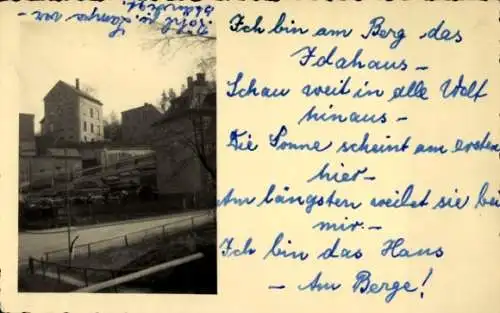 Ich bin am Berg das
Idahaus –
Schau weit in alle Welt
hinaus –
Die Sonne scheint am ersten
hier –
Am längsten weilet sie bei
mir. –
Ich bin das Haus
– Am Berge!